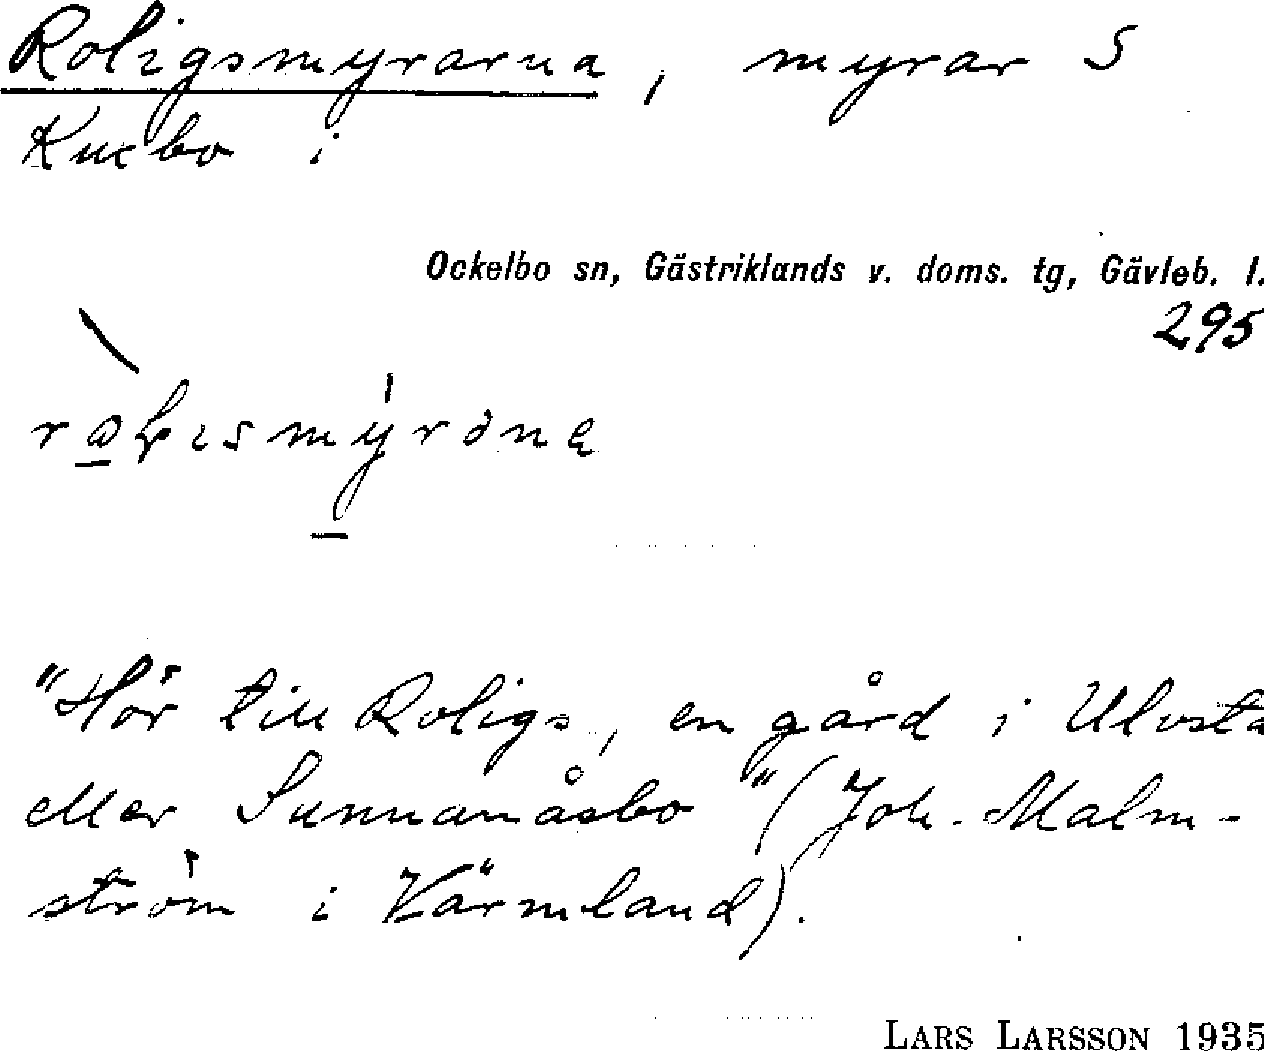 Roligsmyrarna, myrar S
Kucbo i
Ockelbo sn, Gästriklands v. doms. tg, Gävleb. l.
295
"Hör till Roligs, en gård i Ulvsta
eller Sunnanåsbo" (Joh. Malm-
ström i Värmland).
LARS LARSSON 1935